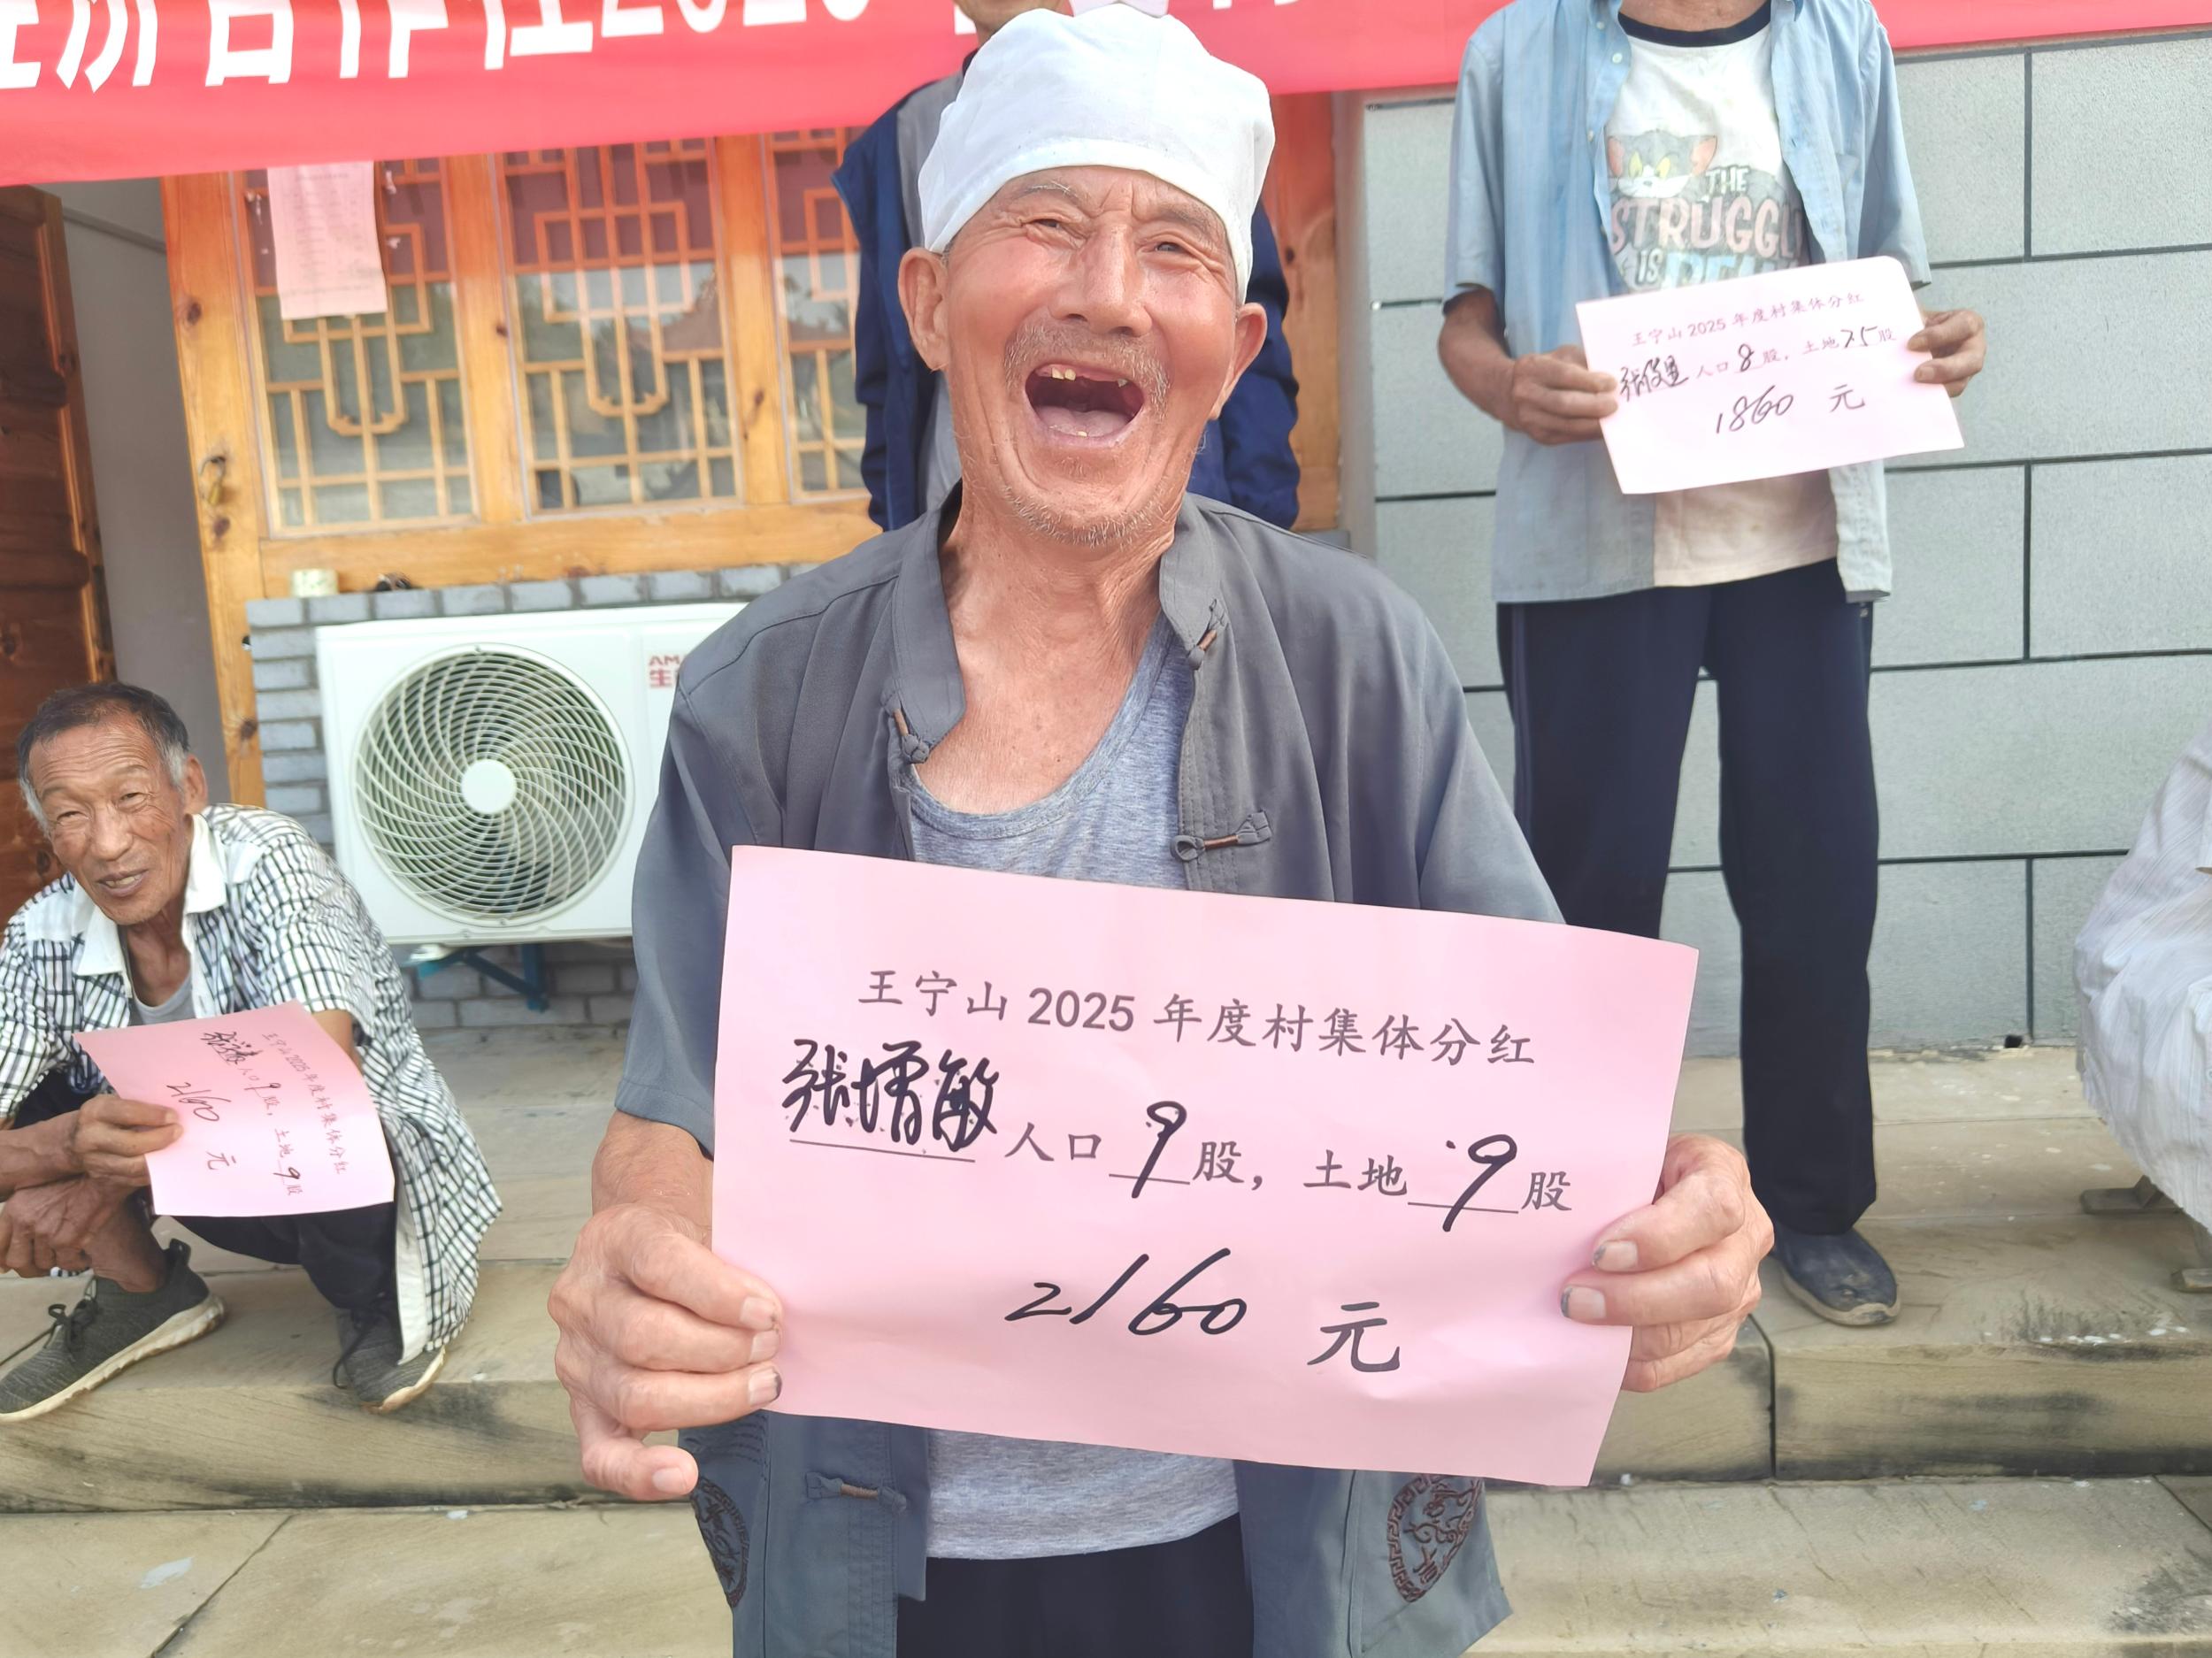 经济合作社2025年
THE
STRUGGL
IS REAL
王宁山2025年度村集体分红
人口8股，土地7.5股
1860 元
AM
生
王宁山2025年度村集体分红
张增敏人口9股，土地9股
2160 元
王宁山2025年度村集体分红
人口9股，土地9股
2160 元